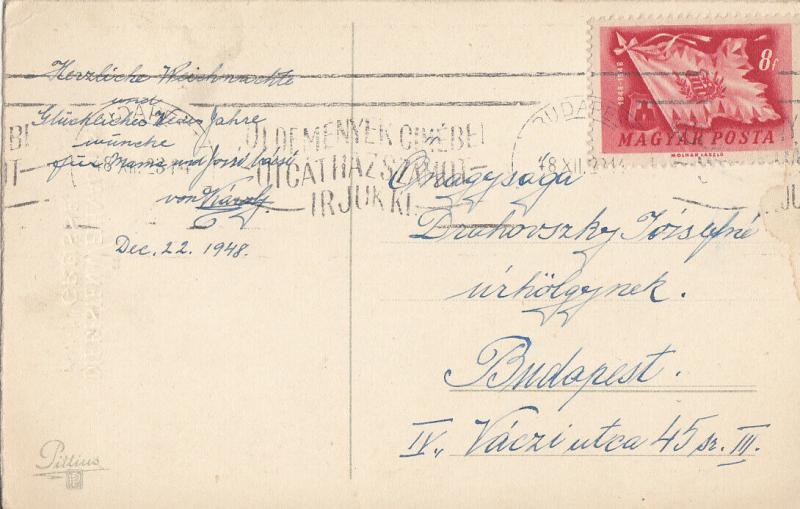 Herzliche Weichnachte
und
Glückliches Neues Jahre
wünche
für Mama und József bácsi
von Károly
Dec. 22. 1948.
Piltius
KÜLDEMÉNYEK CIMÉBEN
UTCÁT HÁZSZÁMOT
IRJUK KI
BUDAPEST
48 XII. 23 14
1848-1948
8f
MAGYAR POSTA
MOLNÁR LÁSZLÓ
Őnagysága
Drahovszky Józsefné
úrhölgynek.
Budapest.
IV., Váczi utca 45 sz. III.